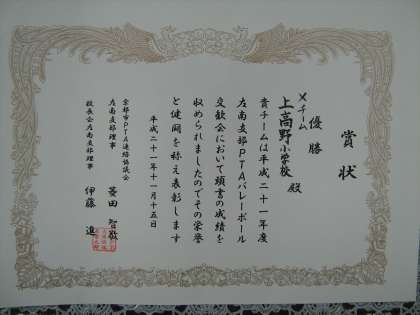 賞状
優勝
Xチーム
上高野小学校 殿
貴チームは平成二十一年度
左南支部PTAバレーボール
交歓会において頭書の成績を
収められましたのでその栄誉
と健闘を称え表彰します
平成二十一年十一月十五日
京都市PTA連絡協議会
左南支部理事 菱田 智敬
校長会左南支部理事 伊藤 進